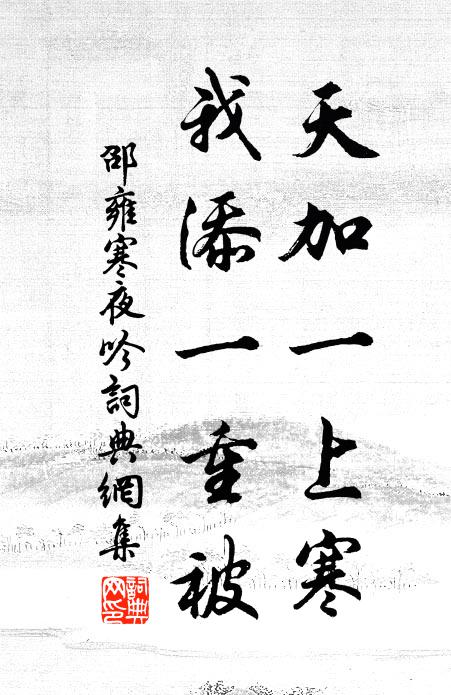 天加一上寒
我添一重被
邵雍寒夜吟詞典網集
詞典網印